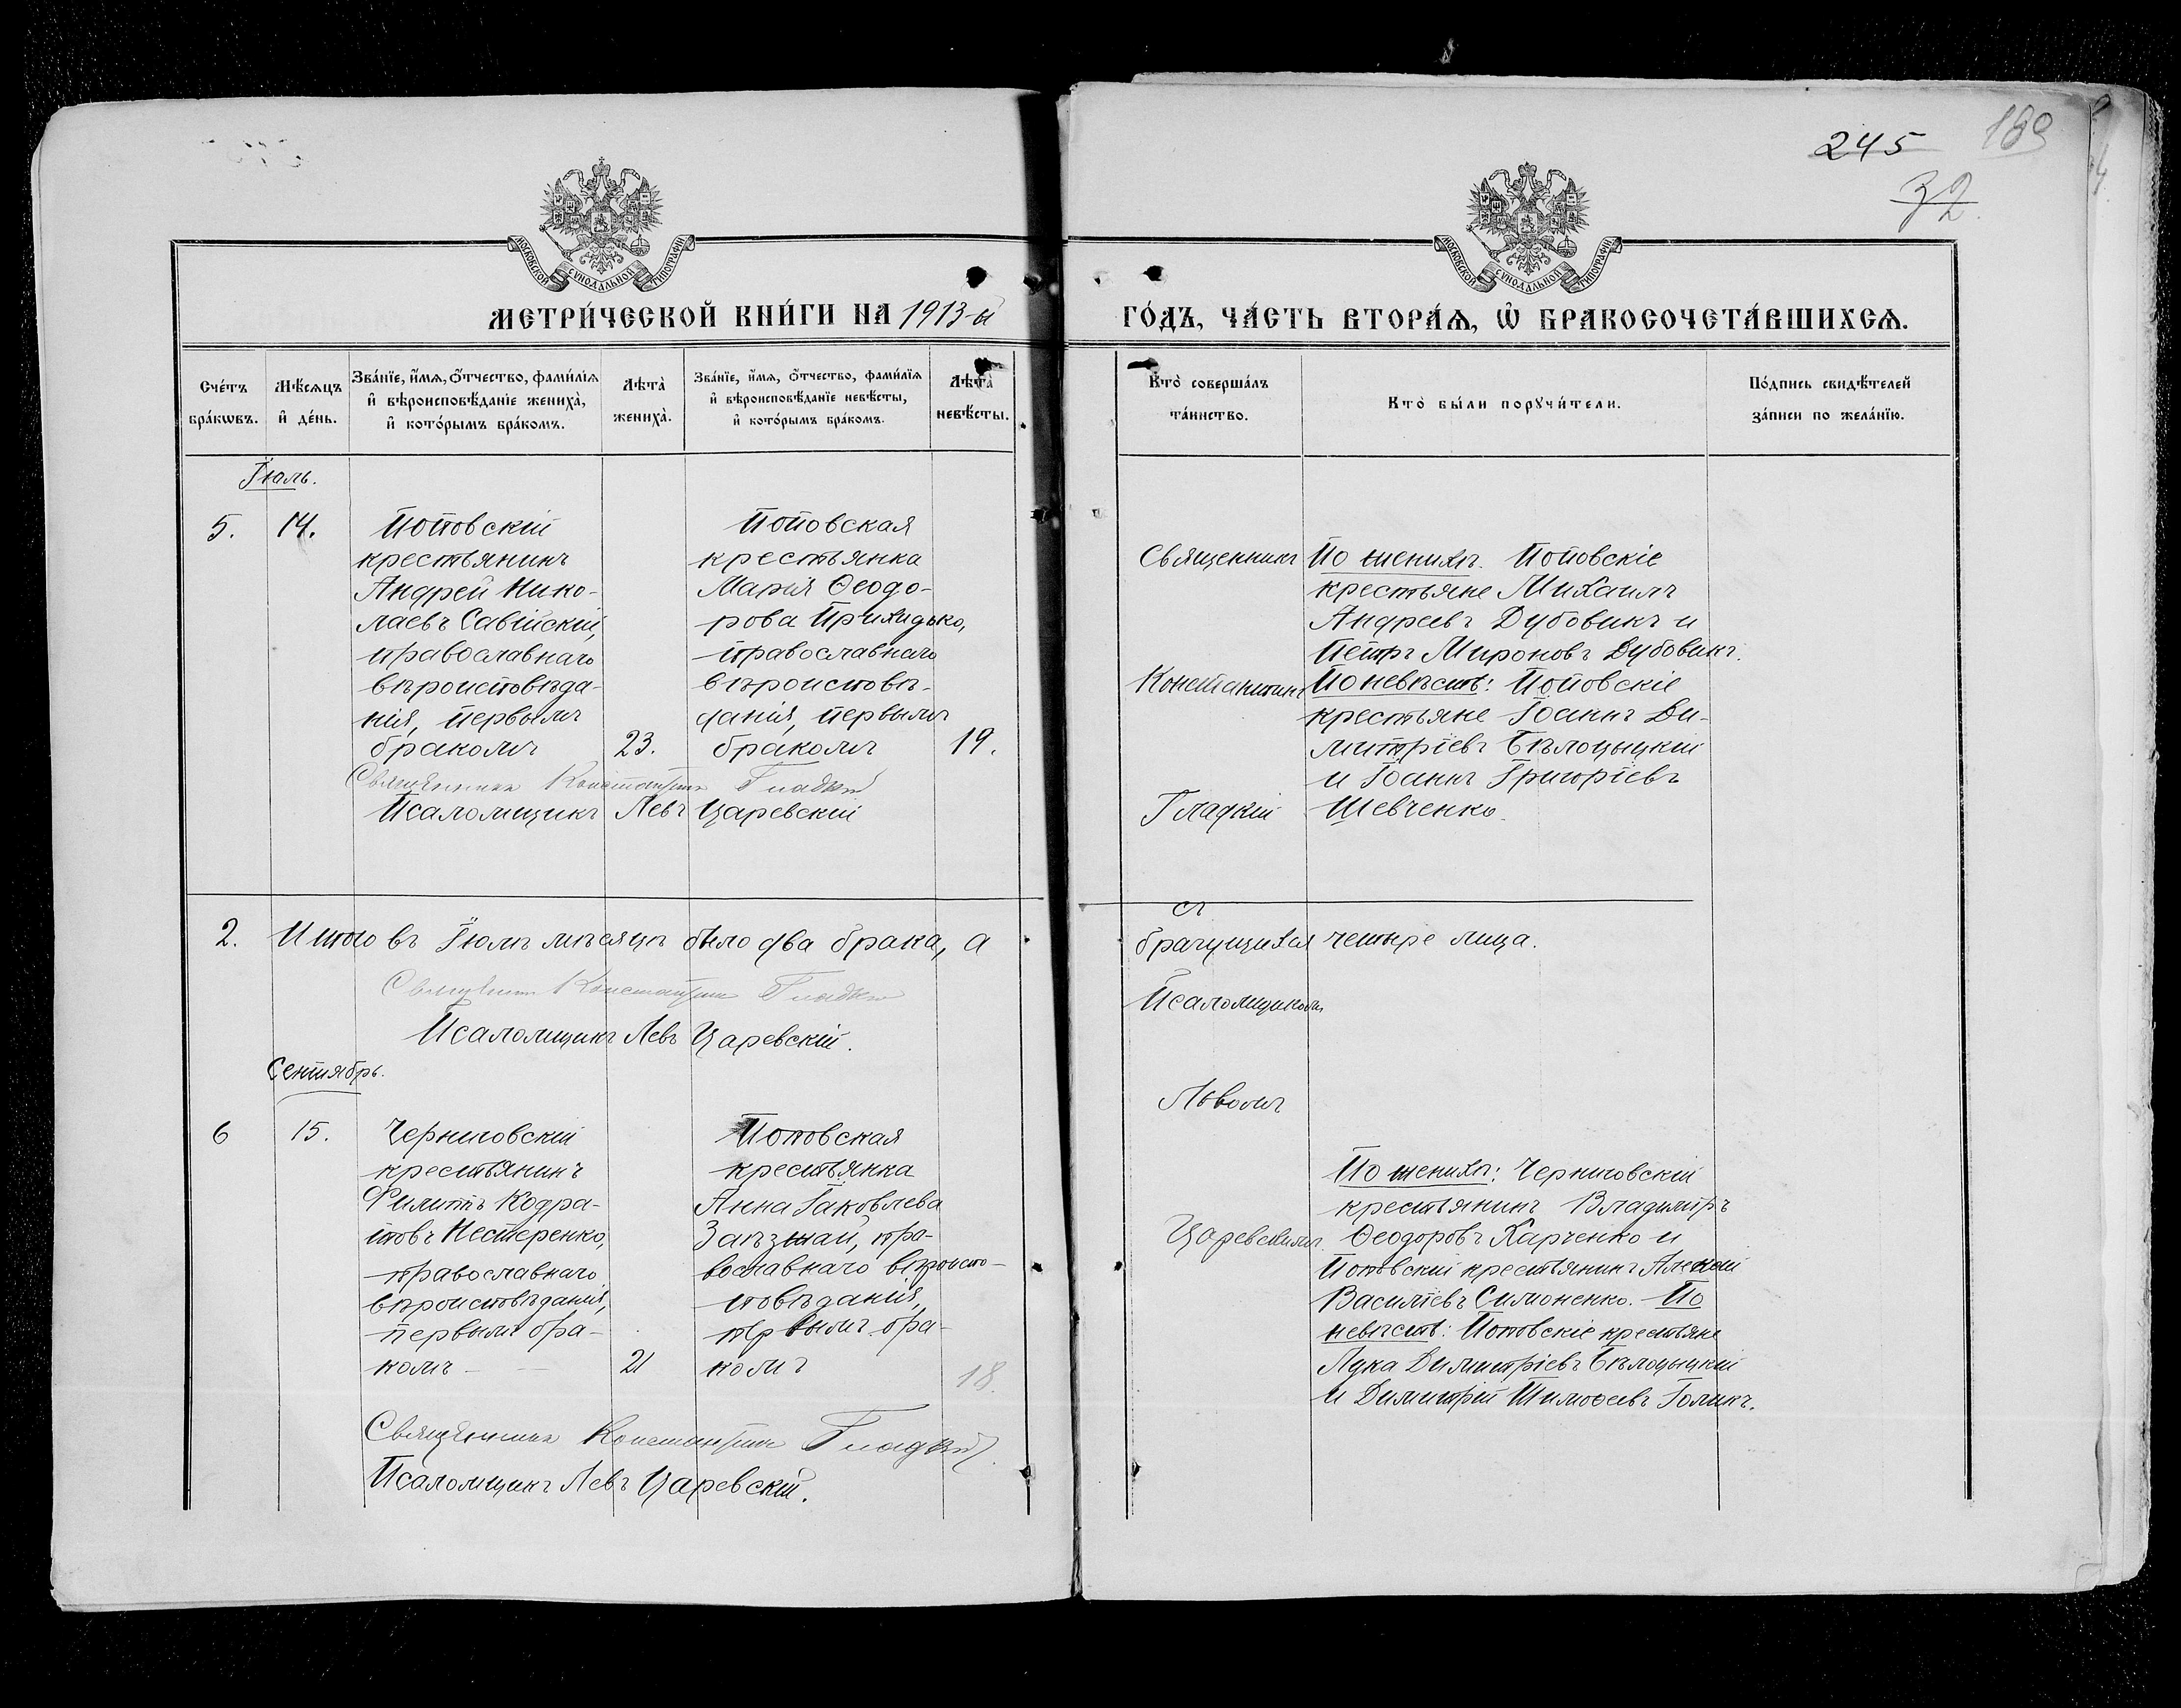 245
189
32
МОСКОВСКОЙ СѴНОДАЛЬНОЙ ТИПОГРАФІИ
МОСКОВСКОЙ СѴНОДАЛЬНОЙ ТИПОГРАФІИ
МЕТРИ́ЧЕСКОЙ КНИ́ГИ НА 1913-й
ГО́ДЪ, ЧА́СТЬ ВТОРА́Ѧ, Ѽ БРАКОСОЧЕТА́ВШИХСѦ.
Сче́тъ бра́кѡвъ.
Мѣ́сяцъ и҆ де́нь.
Зва́нїе, и҆́мѧ, ѻ҆́тчество, фами́лїѧ и҆ вѣроисповѣ́данїе жениха̀, и҆ кото́рымъ бра́комъ.
Лѣ́та̀ жениха̀.
Зва́нїе, и҆́мѧ, ѻ҆́тчество, фами́лїѧ и҆ вѣроисповѣ́данїе невѣ́сты, и҆ кото́рымъ бра́комъ.
Лѣ́та̀ невѣ́сты.
Кто̀ соверша́лъ та́инство.
Кто̀ бы́ли порꙋчи́тели.
По́дпись свидѣ́телей за́писи по жела́нїю.
Іюль.
5.
14.
Поповскій
крестьянинъ
Андрей Нико-
лаевъ Савійскій,
православнаго
вѣроисповѣда-
нія, первымъ
бракомъ
23.
Поповская
крестьянка
Марія Ѳеодо-
рова Прихидько,
православнаго
вѣроисповѣ-
данія, первымъ
бракомъ
19.
Священникъ Константинъ Гладкій
Псаломщикъ Левъ Царевскій
Священникъ
Константинъ
Гладкій
По женихѣ. Поповскіе
крестьяне Михаилъ
Андреевъ Дубовикъ и
Петръ Мироновъ Дубовикъ.
По невѣстѣ: Поповскіе
крестьяне Іоаннъ Ди-
митріевъ Бѣлоцыцкій
и Іоаннъ Григоріевъ
Шевченко.
2. Итого въ Іюлѣ мѣсяцѣ было два брака, а
съ
брачущихся четыре лица.
Священникъ Константинъ Гладкій
Псаломщикъ Левъ Царевскій.
Псаломщикомъ
Львомъ
Царевскимъ.
Сентябрь.
6
15.
Черниговскій
крестьянинъ
Филиппъ Кодра-
товъ Нестеренко,
православнаго
вѣроисповѣданія,
первымъ бра-
комъ
21
Поповская
крестьянка
Анна Іаковлева
пра-
вославнаго вѣроиспо-
повѣданія,
первымъ бра-
комъ
18.
По женихѣ: Черниговскій
крестьянинъ Владиміръ
Ѳеодоровъ Харченко и
Поповскій крестьянинъ Алексій
Василіевъ Симоненко. По
невѣстѣ: Поповскіе крестьяне
Лука Димитріевъ Бѣлоцыцкій
и Димитрій Тимоѳеевъ Голикъ.
Священникъ Константинъ Гладкій
Псаломщикъ Левъ Царевскій.